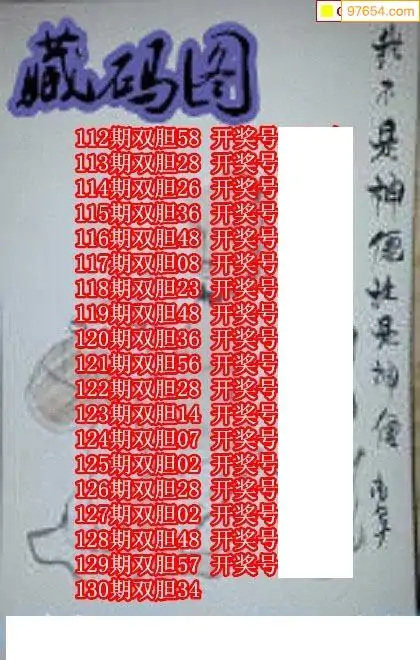 97654.com
藏码图
112期双胆58 开奖号
113期双胆28 开奖号
114期双胆26 开奖号
115期双胆36 开奖号
116期双胆48 开奖号
117期双胆08 开奖号
118期双胆23 开奖号
119期双胆48 开奖号
120期双胆36 开奖号
121期双胆56 开奖号
122期双胆28 开奖号
123期双胆14 开奖号
124期双胆07 开奖号
125期双胆02 开奖号
126期双胆28 开奖号
127期双胆02 开奖号
128期双胆48 开奖号
129期双胆57 开奖号
130期双胆34
是神
是神